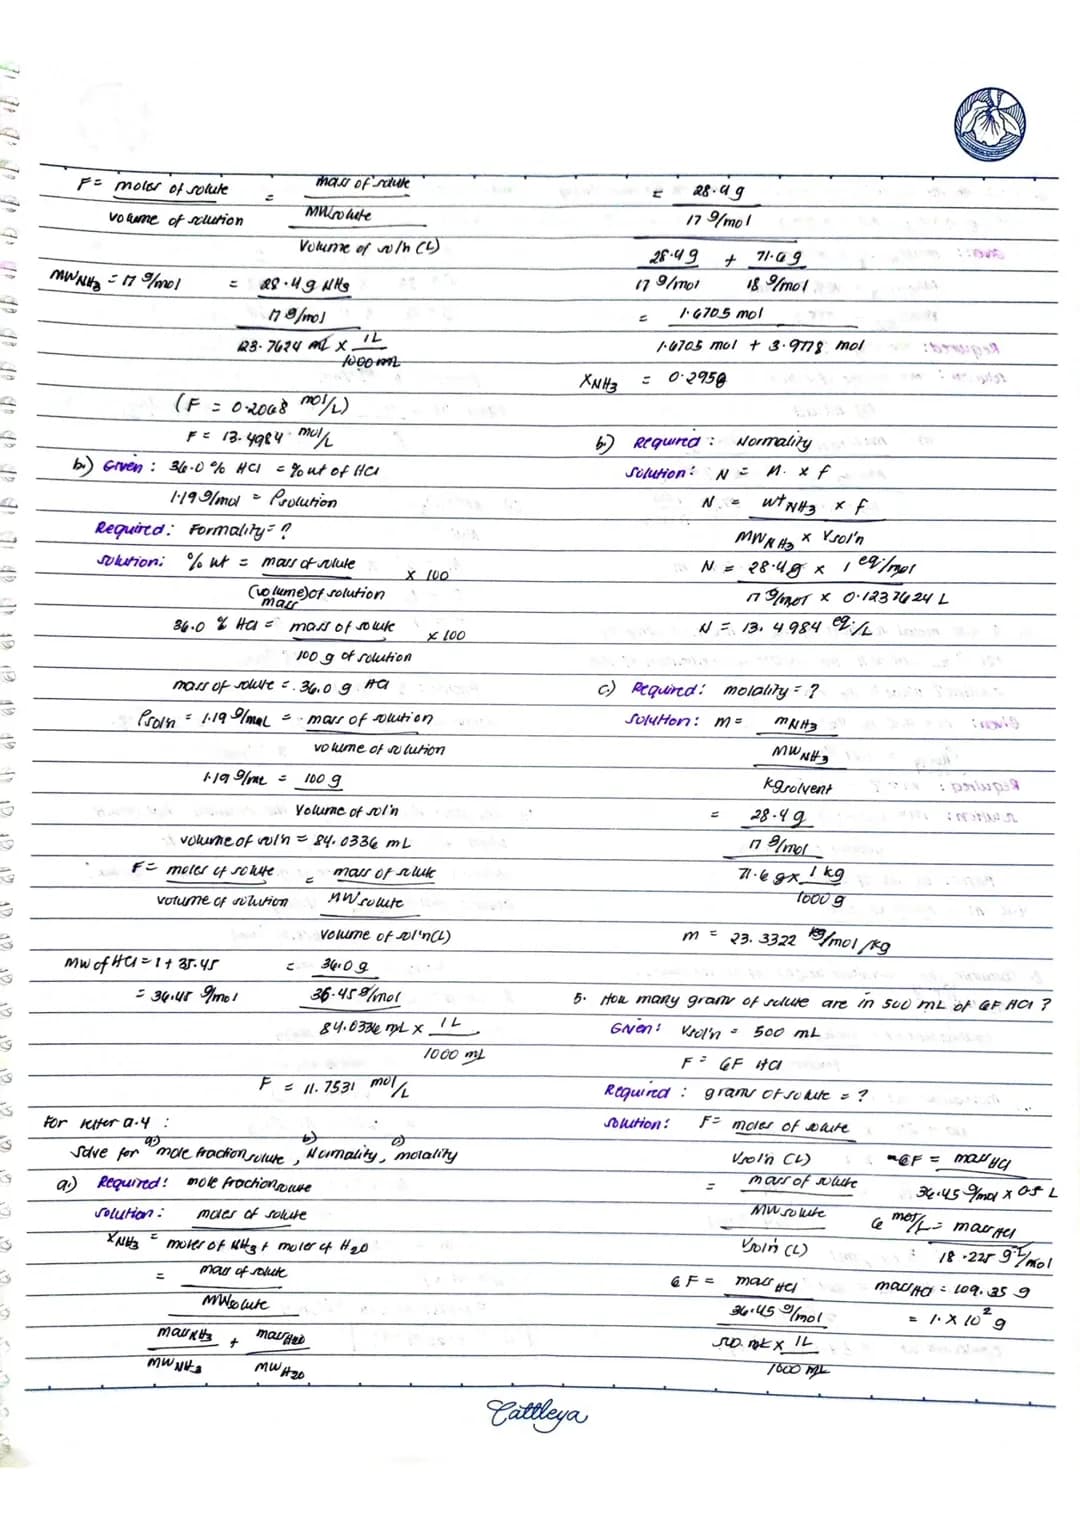 F = moles of solute = mass of solute
volume of solution MWsolute
Volume of sol'n (L)
MW NH3 = 17 g/mol = 28.4 g NH3
17 g/mol
123.7624 mL x 1L
1000 mL
(F = 0.2068 mol/L)
F = 13.4984 mol/L
b.) Given : 36.0 % HCl = % wt of HCl
1.19 g/mol = ρsolution
Required : Formality = ?
Solution: % wt = mass of solute x 100
(volume) of solution
mass
36.0 % HCl = mass of solute x 100
100 g of solution
mass of solute = 36.0 g HCl
ρsol'n = 1.19 g/mL = mass of solution
volume of solution
1.19 g/mL = 100 g
Volume of sol'n
volume of sol'n = 84.0336 mL
F = moles of solute = mass of solute
volume of solution MWsolute
Volume of sol'n (L)
MW of HCl = 1 + 35.45 = 36.0 g
= 36.45 g/mol 36.45 g/mol
84.0336 mL x 1 L
1000 mL
F = 11.7531 mol/L
For letter a.4 :
Solve for a) mole fraction solute, b) Normality, c) molality
a.) Required : mole fraction solute
Solution : moles of solute
XNH3 = moles of NH3 + moles of H2O
= mass of solute
MWsolute
mass NH3 + mass H2O
MW NH3 MW H2O
= 28.4 g
17 g/mol
28.4 g + 71.6 g
17 g/mol 18 g/mol
= 1.6705 mol
1.6705 mol + 3.9778 mol
XNH3 = 0.2958
b.) Required : Normality
Solution : N = M. x f
N = wt NH3 x f
MW NH3 x Vsol'n
N = 28.4 g x 1 eq/mol
17 g/mol x 0.1237624 L
N = 13.4984 eq/L
c.) Required : molality = ?
Solution : m = mNH3
MW NH3
kg solvent
= 28.4 g
17 g/mol
71.6 g x 1 kg
1000 g
m = 23.3322 mol/kg
5. How many grams of solute are in 500 mL of 6F HCl ?
Given : Vsol'n = 500 mL
F = 6F HCl
Required : grams of solute = ?
Solution : F = moles of solute
Vsol'n (L)
= mass of solute
MW solute
Vsol'n (L)
6 F = mass HCl
36.45 g/mol
500 mL x 1L
1000 mL
6F = mass HCl
36.45 g/mol x 0.5 L
6 mol/L = mass HCl
18.225 g·L/mol
mass HCl = 109.35 g
= 1. x 10² g
Cattleya